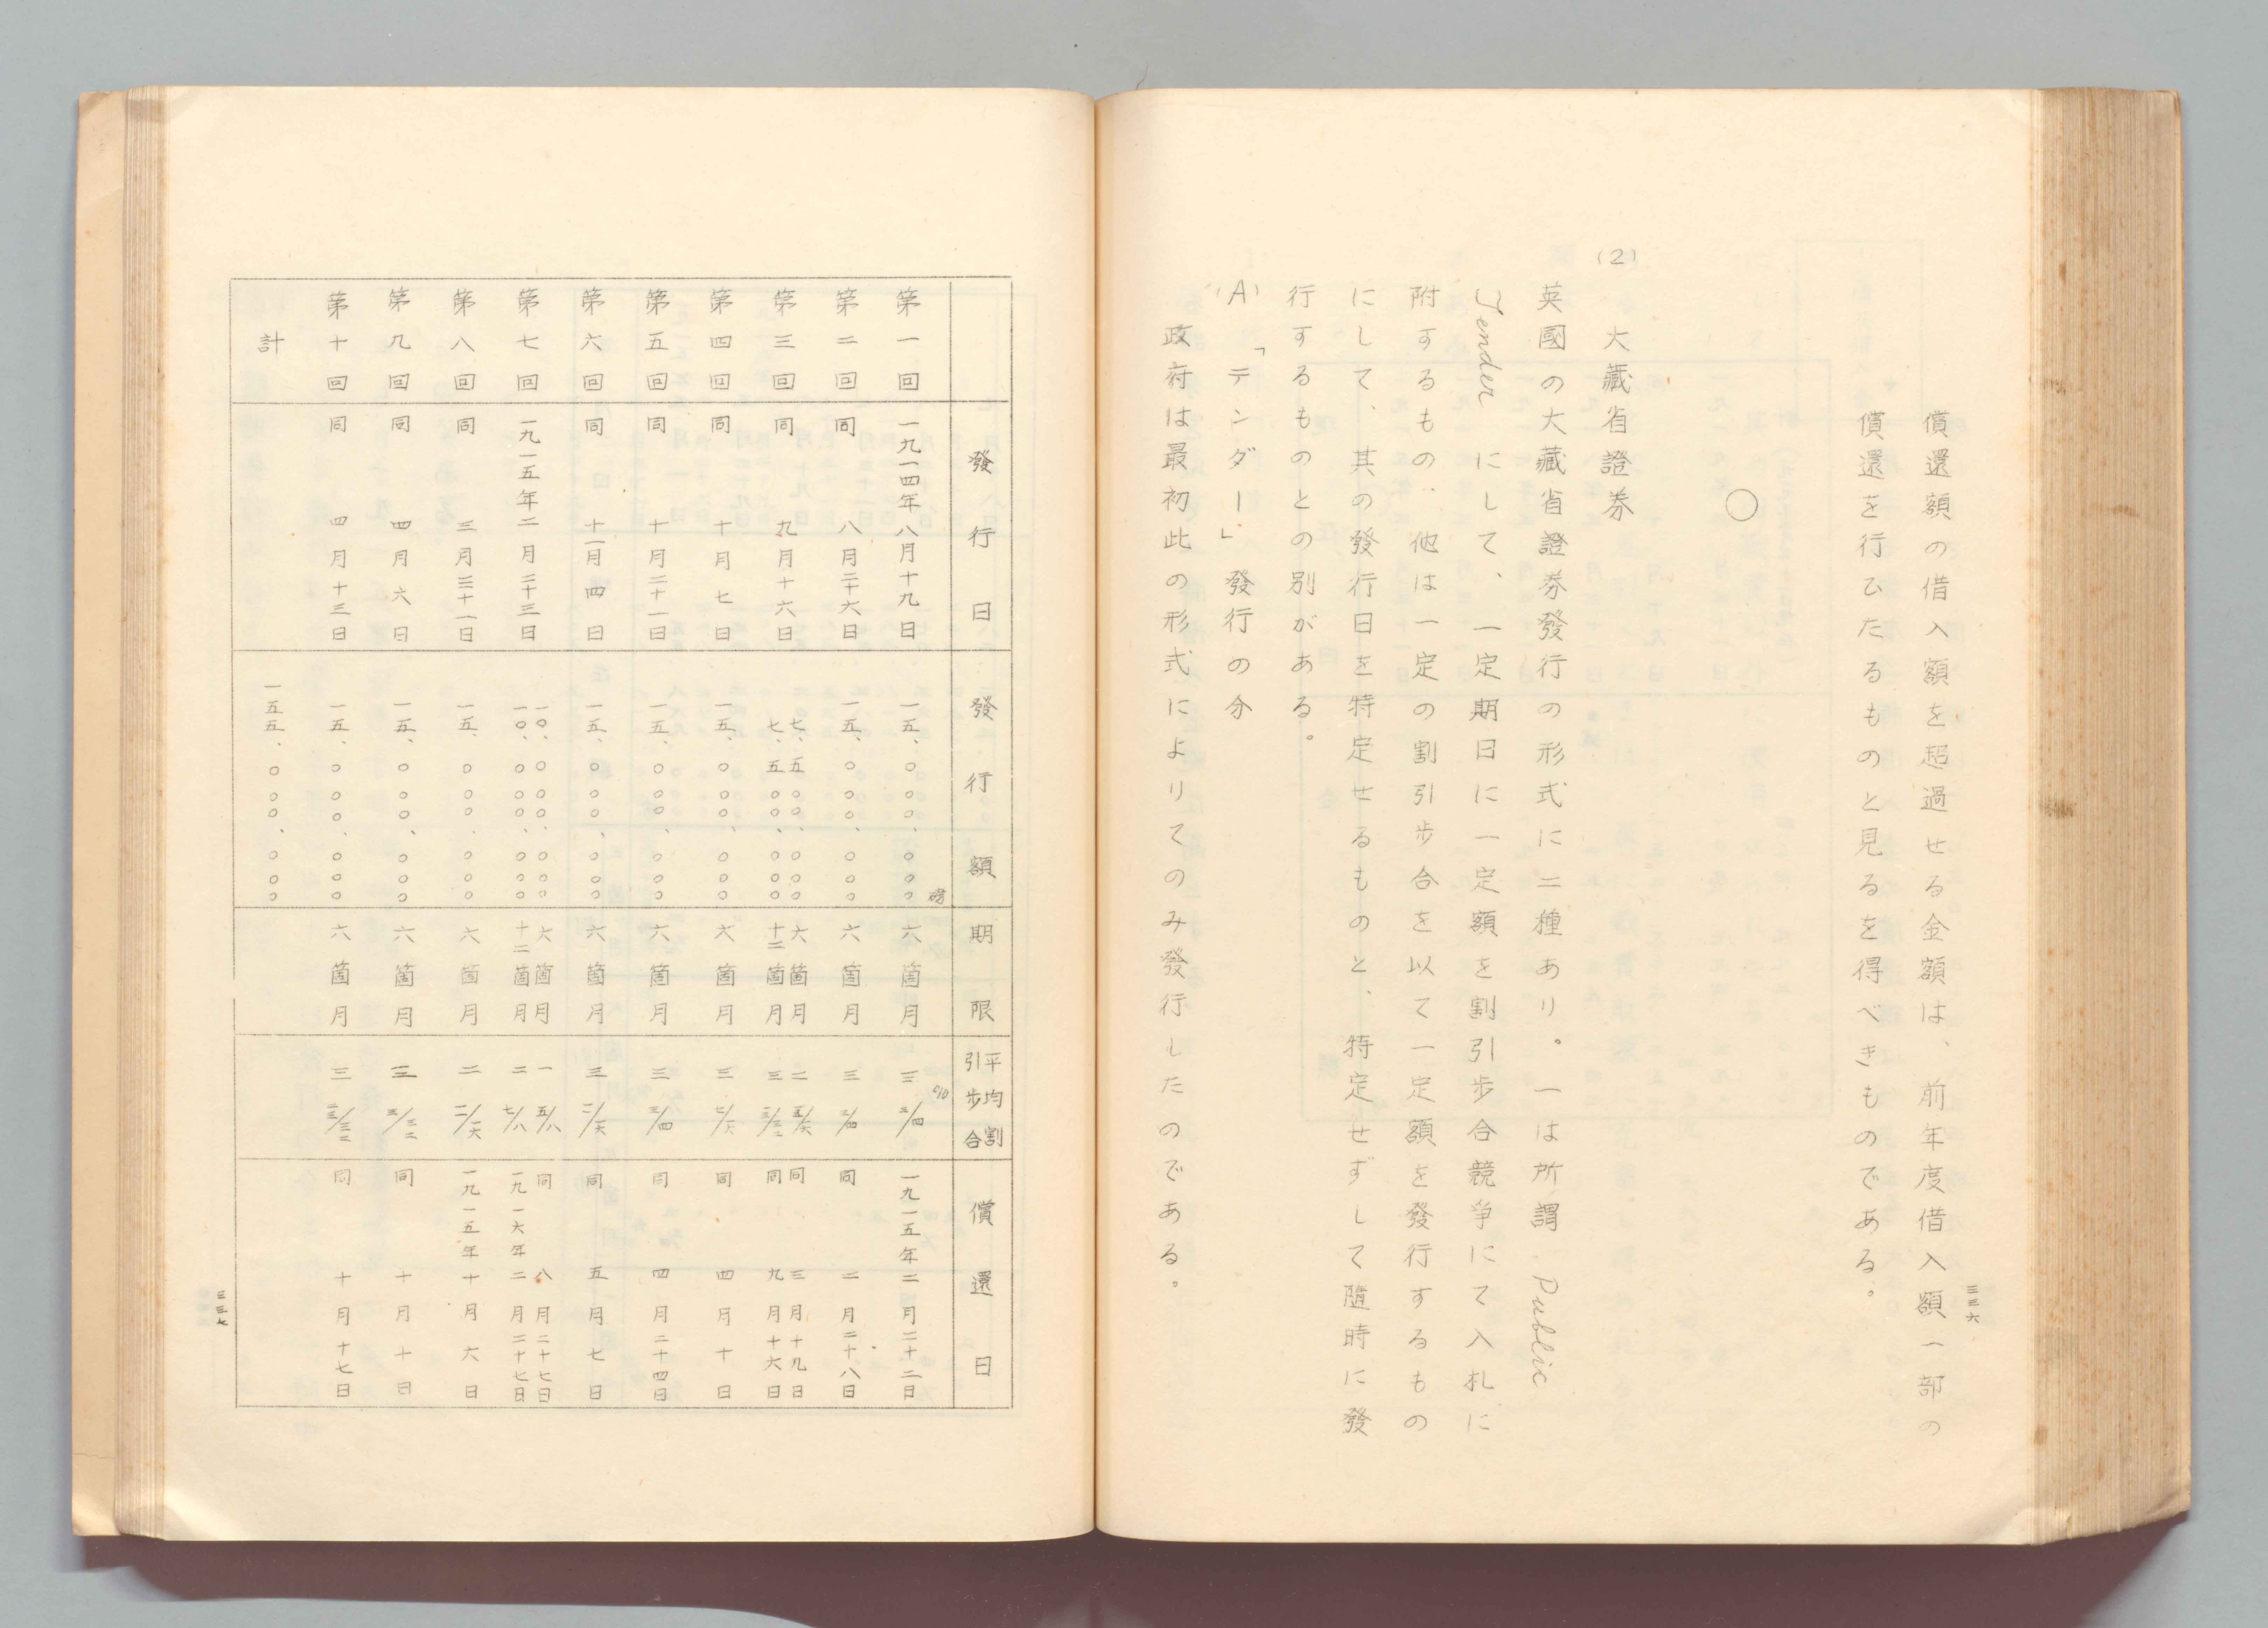 三三六
償還額の借入額を超過せる金額は、前年度借入額一部の
償還を行ひたるものと見るを得べきものである。
○
(2) 大藏省證券
英國の大藏省證券發行の形式に二種あり。一は所謂 Public
Tender にして、一定期日に一定額を割引歩合競争にて入札に
附するもの、他は一定の割引歩合を以て一定額を發行するもの
にして、其の發行日を特定せるものと、特定せずして隨時に發
行するものとの別がある。
(A)「テンダー」發行の分
政府は最初此の形式によりてのみ發行したのである。
發行日 發行額 期限 平均割引歩合 償還日
第一回 一九一四年八月十九日 一五、〇〇〇、〇〇〇磅 六箇月 三 三/四% 一九一五年二月二十二日
第二回 同 八月二十六日 一五、〇〇〇、〇〇〇 六箇月 三 三/四 同 二月二十八日
第三回 同 九月十六日 七、五〇〇、〇〇〇 六箇月 二 同 三月十九日
七、五〇〇、〇〇〇 十二箇月 三 同 九月十六日
第四回 同 十月七日 一五、〇〇〇、〇〇〇 六箇月 三 同 四月十日
第五回 同 十月二十一日 一五、〇〇〇、〇〇〇 六箇月 三 三/四 同 四月二十四日
第六回 同 十一月四日 一五、〇〇〇、〇〇〇 六箇月 三 同 五月七日
第七回 一九一五年二月二十三日 一〇、〇〇〇、〇〇〇 六箇月 一 五/八 同 八月二十七日
一〇、〇〇〇、〇〇〇 十二箇月 二 七/八 一九一六年二月二十七日
第八回 同 三月三十一日 一五、〇〇〇、〇〇〇 六箇月 二 一九一五年十月六日
第九回 同 四月六日 一五、〇〇〇、〇〇〇 六箇月 三 同 十月十日
第十回 同 四月十三日 一五、〇〇〇、〇〇〇 六箇月 三 同 十月十七日
計 一五五、〇〇〇、〇〇〇
三三七